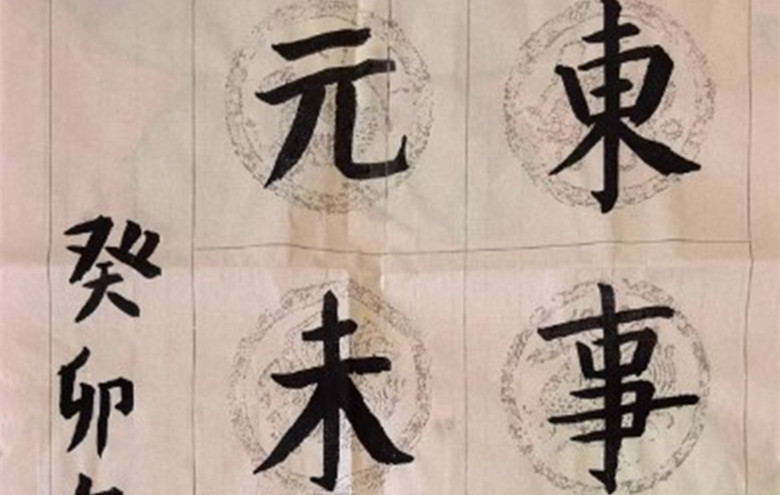 東事
元未
癸卯